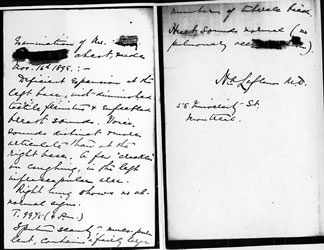 Examination of Mr.
chest, made
Nov. 16th 1895:-
Deficient expansion at the
left base, with diminished
tactile fremitus & enfeebled
breath sounds. Voice
sounds distinct & more
articulate than at the
right base. A few "crackles"
on coughing, in the left
infrascapular area.
Right lung shows no ab-
normal signs.
T. 99⅖ (6 P.m.)
Sputum scanty & muco-puru-
lent, contains a fairly large
number of tubercle bacilli.
Heart sounds normal (no
pulmonary acc
M.D.
58 University St.
Montreal.